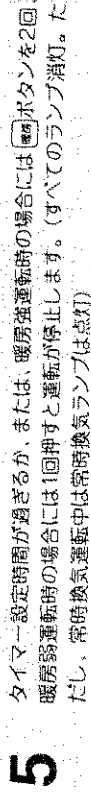 5 タイマー設定時間が過ぎるか、または、暖房強運転時の場合には 暖房 ボタンを2回、
暖房弱運転時の場合には1回押すと運転が停止します。(すべてのランプ消灯。た
だし、常時換気運転中は常時換気ランプは点灯)